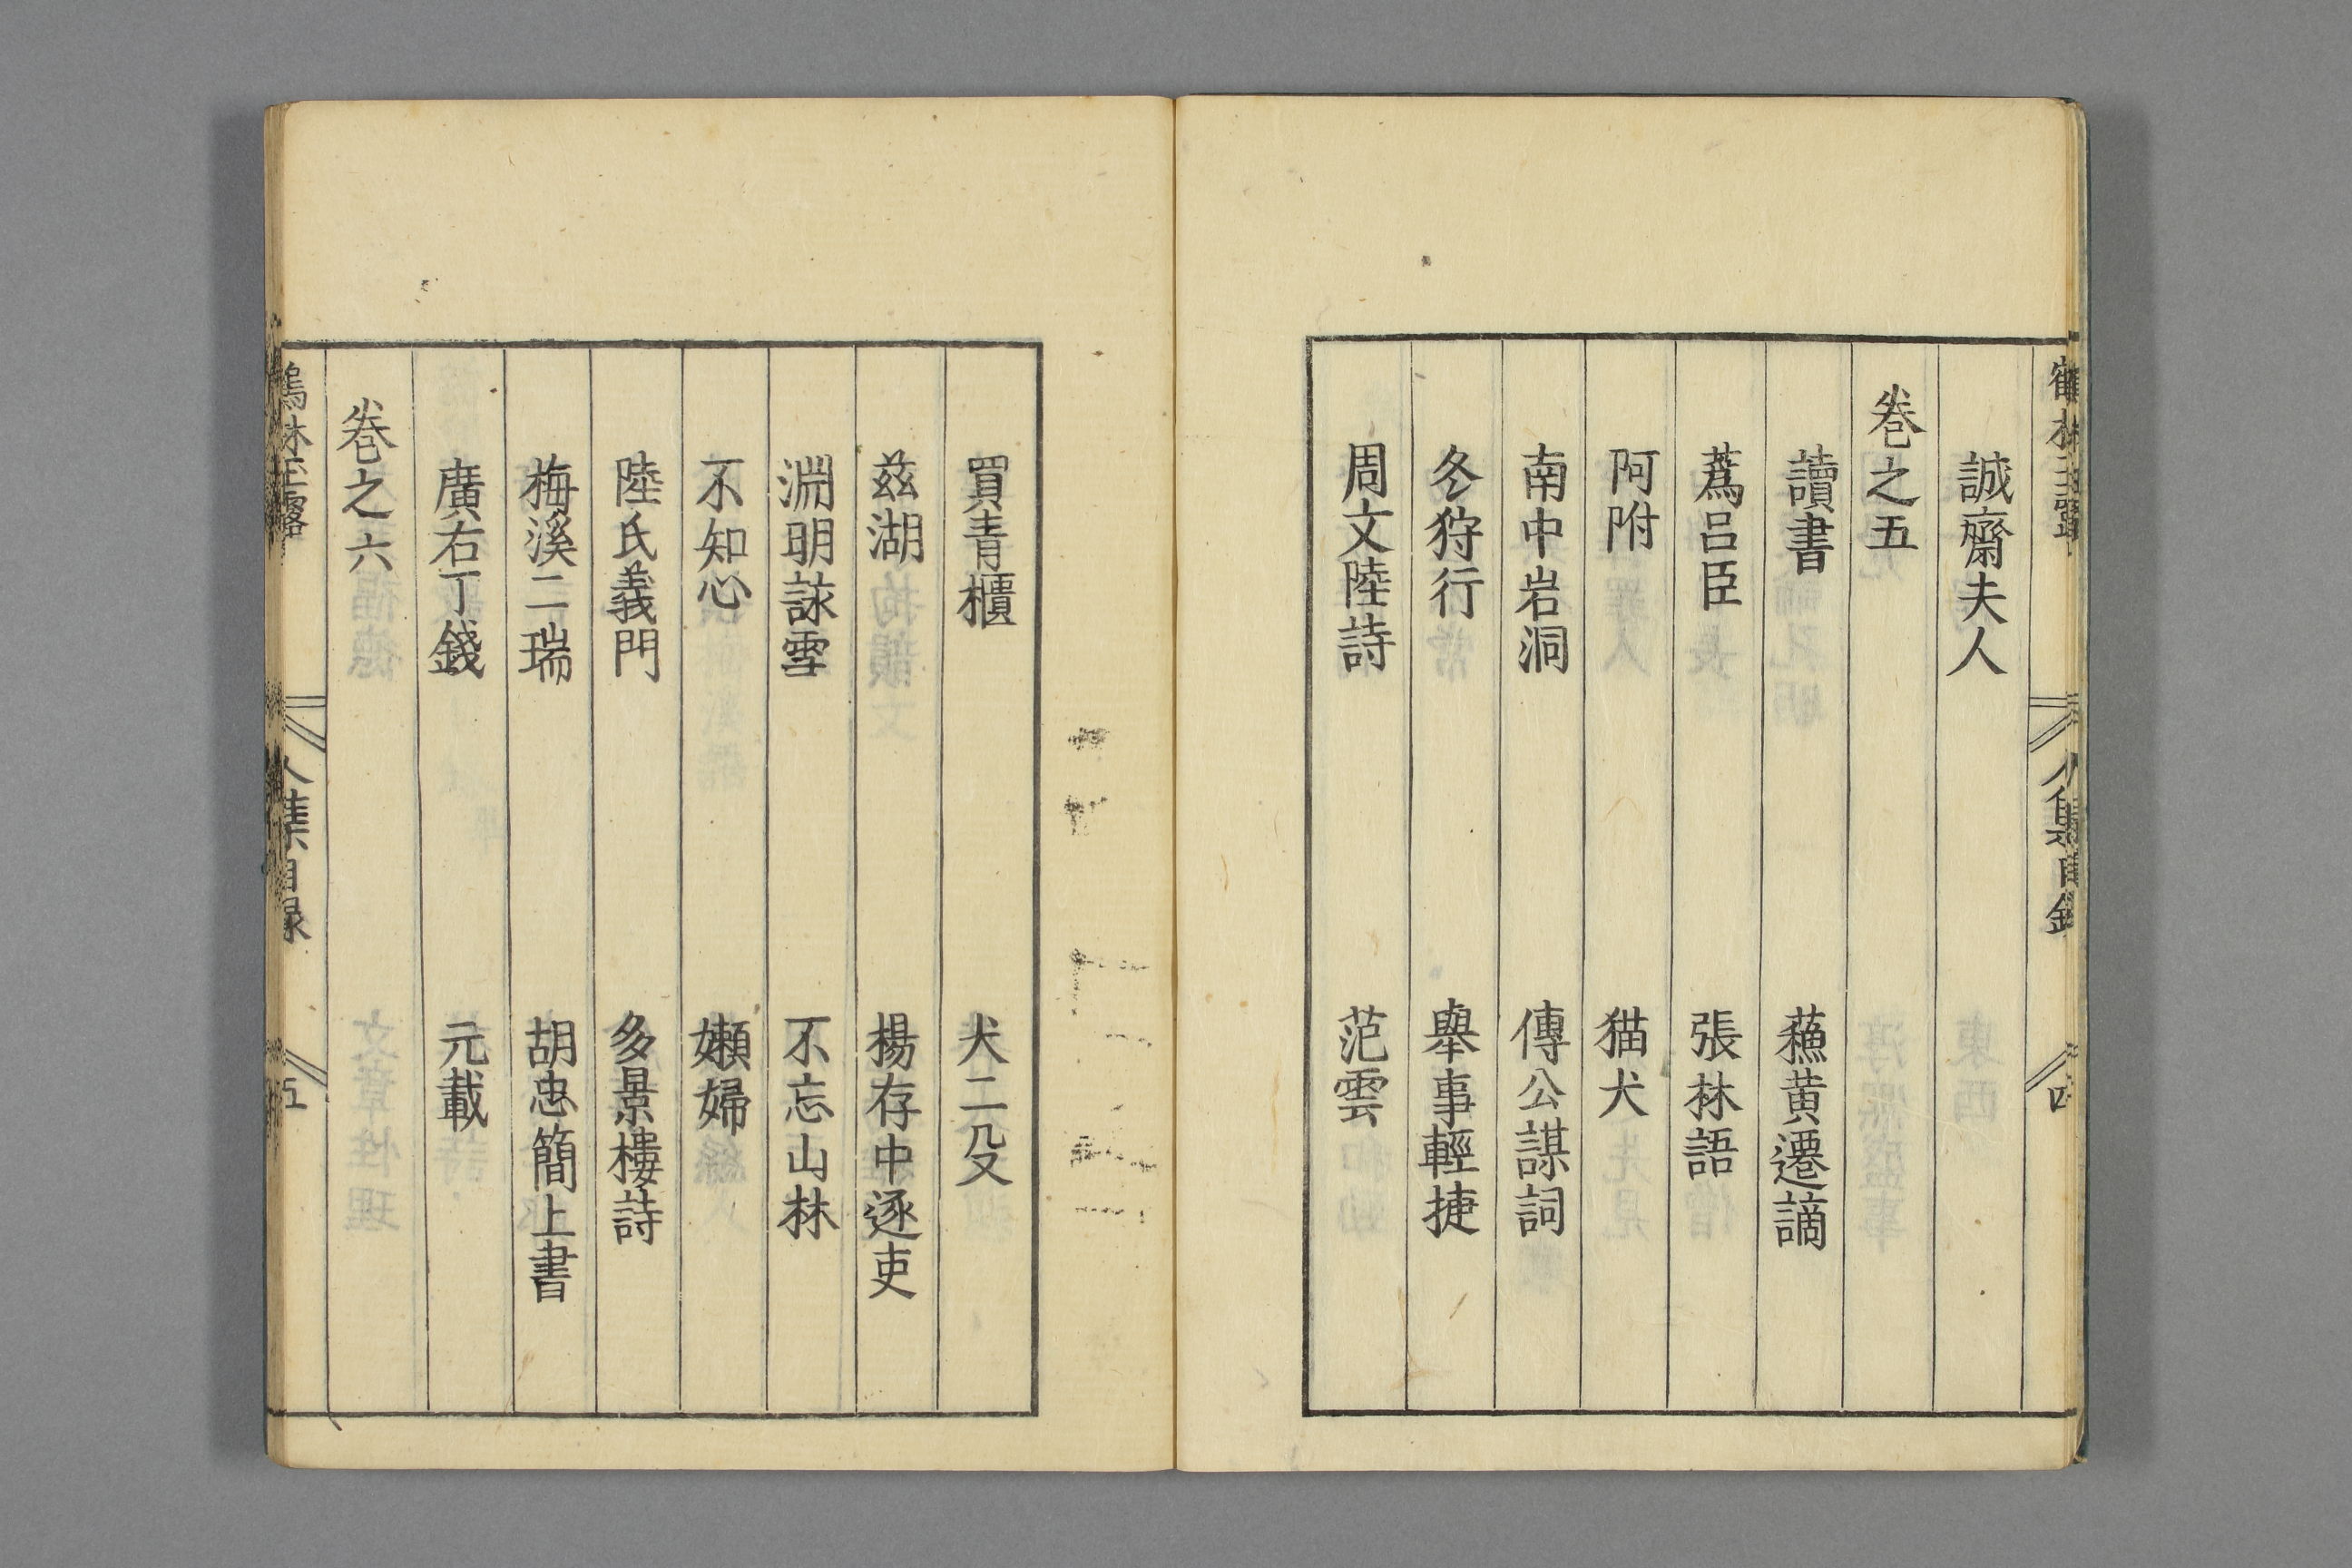 誠齋夫人
卷之五
讀書 蘓黄遷謫
蔿呂臣 張林語
阿附 猫犬
南中岩洞 傳公謀詞
冬狩行 舉事輕捷
周文陸詩 范雲
買青櫃 犬二殳
茲湖 楊存中逐吏
淵明詠雪 不忘山林
不知心 嬾婦
陸氏義門 多景樓詩
梅溪二瑞 胡忠簡上書
廣右丁錢 元載
卷之六
鶴林玉露 人集目録 五